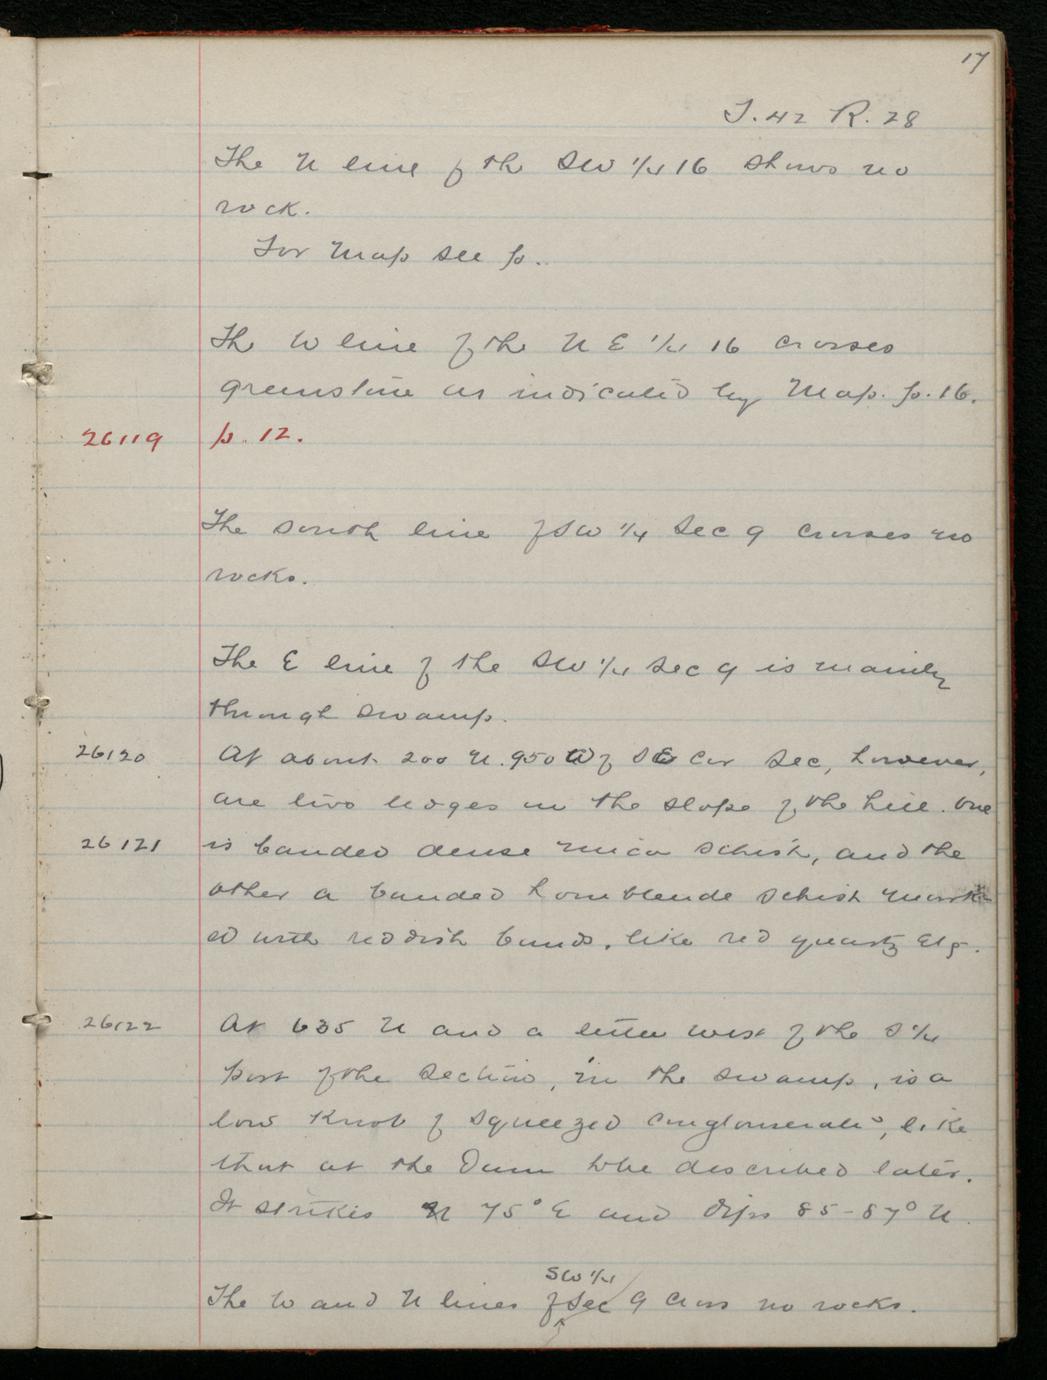 17
T. 42 R. 28
The N line of the SW 1/4 16 shows no
rock.
For Map see p.
The W line of the N E 1/4 16 crosses
greenstone as indicated by Map. p. 16.
26119 p. 12.
The south line of SW 1/4 Sec 9 crosses no
rocks.
The E line of the SW 1/4 Sec 9 is mainly
through swamp.
26120 At about 200 N. 950 W of SE Cor Sec, however,
are two ledges on the slope of the hill. One
26121 is banded dense mica schist, and the
other a banded hornblende schist mark
ed with reddish bands, like red quartz
26122 At 635 N and a little west of the S 1/4
post of the Section, in the swamp, is a
low Knob of squeezed conglomerate, like
that at the Dam to be described later.
It strikes N 75° E and dips 85-87° N.
SW 1/4
The W and N lines of Sec 9 cross no rocks.